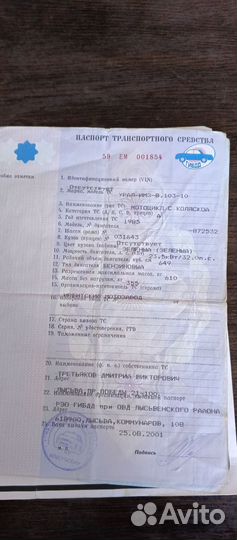 ПАСПОРТ ТРАНСПОРТНОГО СРЕДСТВА
59 ЕМ 001854
1. Идентификационный номер (VIN)
Отсутствует
2. Марка, модель ТС УРАЛ-ИМЗ-8.103-10
3. Наименование (тип ТС) МОТОЦИКЛ С КОЛЯСКОЙ
4. Категория ТС (A, B, C, D, прицеп) A
5. Год изготовления ТС 1985
6. Модель, № двигателя
7. Шасси (рама) № 072532
8. Кузов (прицеп) № 031643
9. Цвет кузова ЗЕЛЕНЫЙ (ЗЕЛЕНЫЙ)
10. Мощность двигателя 23.5кВт/32.0л.с.
11. Рабочий объем двигателя, куб. см 649
12. Тип двигателя БЕНЗИНОВЫЙ
13. Разрешенная максимальная масса, кг 610
14. Масса без нагрузки, кг 355
15. Организация-изготовитель ТС (страна)
МОТОЗАВОД
17. Страна вывоза ТС
18. Серия, № ТД, ТПО
19. Таможенные ограничения
20. Наименование (ф. и. о.) собственника ТС
ТРЕТЬЯКОВ ДМИТРИЙ ВИКТОРОВИЧ
21. Адрес
ЛЫСЬВА, ПР. ПОБЕДЫ
22. Наименование организации, выдавшей паспорт
РЭО ГИБДД при ОВД ЛЫСЬВЕНСКОГО РАЙОНА
23. Адрес
ЛЫСЬВА, КОММУНАРОВ, 108
24. Дата выдачи паспорта
25.08.2001
М. П.
Подпись
Avito